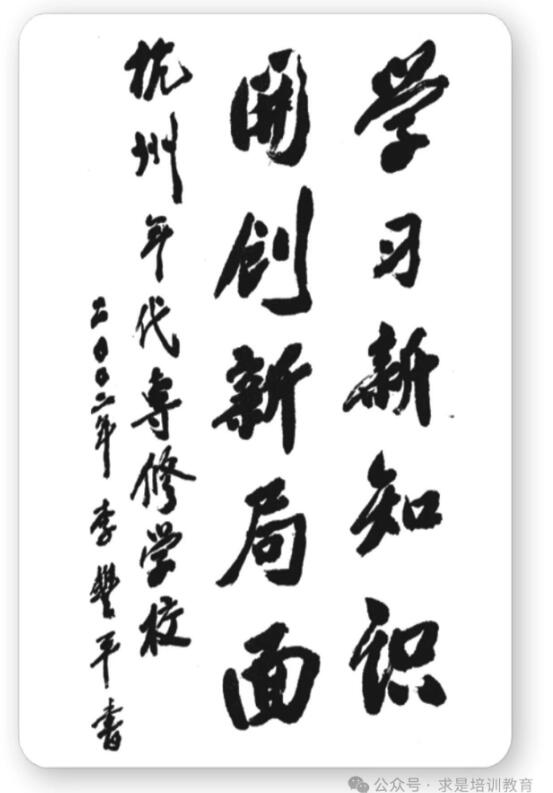 学习新知识
開创新局面
杭州年代専修学校
二〇〇二年李豐平書
公众号·求是培训教育